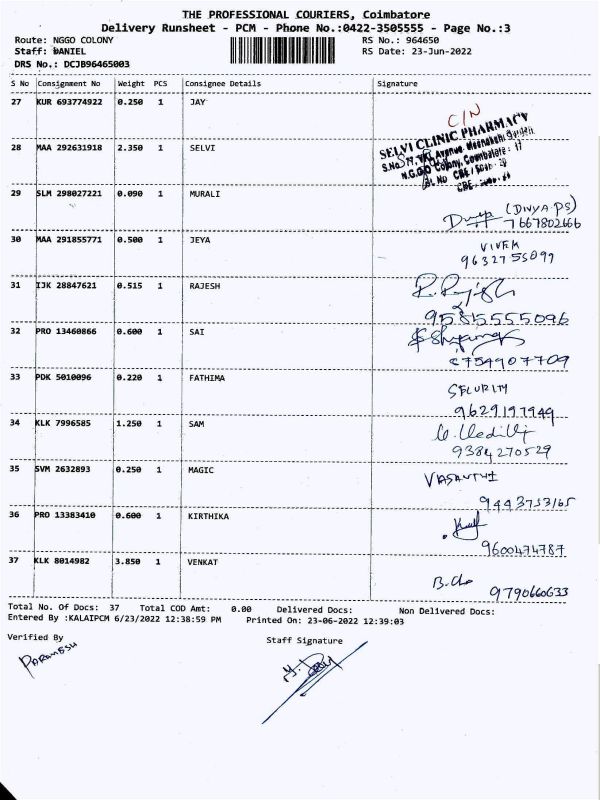 THE PROFESSIONAL COURIERS, Coimbatore
Delivery Runsheet - PCM - Phone No.:0422-3505555 - Page No.:3
Route: NGGO COLONY RS No.: 964650
Staff: DANIEL RS Date: 23-Jun-2022
DRS No.: DCJB96465003
S No Consignment No Weight PCS Consignee Details Signature
27 KUR 693774922 0.250 1 JAY C/N
28 MAA 292631918 2.350 1 SELVI SELVI CLINIC PHARMACY
29 SLM 298027221 0.090 1 MURALI (DIVYA PS)
7667802666
30 MAA 291855771 0.500 1 JEYA VIVEK
9632755099
31 IJK 28847621 0.515 1 RAJESH
32 PRO 13460866 0.600 1 SAI
8754907709
33 PDK 5010096 0.220 1 FATHIMA SECURITY
9629197949
34 KLK 7996585 1.250 1 SAM
9384270529
35 SVM 2632893 0.250 1 MAGIC VASANTHI
9443753165
36 PRO 13383410 0.600 1 KIRTHIKA
9600474787
37 KLK 8014982 3.850 1 VENKAT
9790660633
Total No. Of Docs: 37 Total COD Amt: 0.00 Delivered Docs: Non Delivered Docs:
Entered By :KALAIPCM 6/23/2022 12:38:59 PM Printed On: 23-06-2022 12:39:03
Verified By Staff Signature
PARAMESH